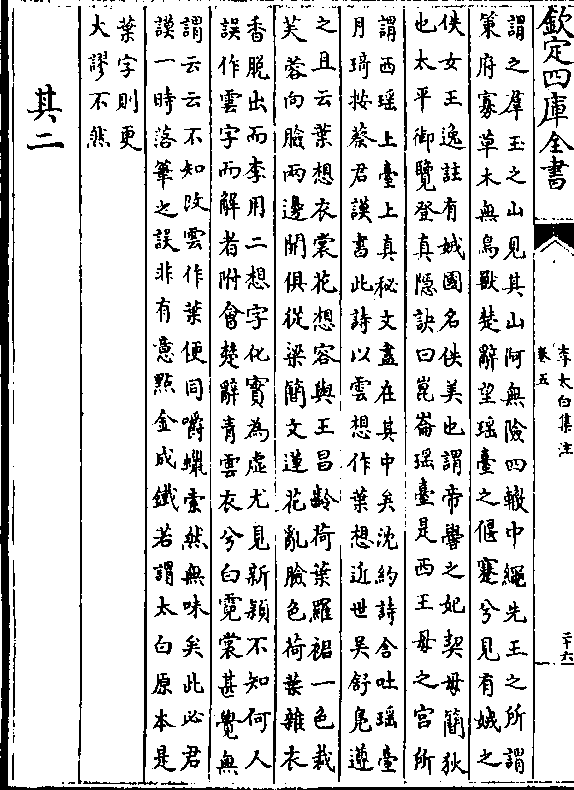 欽定四庫全書
李太白集注
卷五
二十六
謂之羣玉之山見其山阿無險四轍中繩先王之所謂
策府寡草木無鳥獸楚辭望瑤臺之偃蹇兮見有娀之
佚女王逸註有娀國名佚美也謂帝嚳之妃契母簡狄
也太平御覽登真隱訣曰崑崙瑤臺是西王母之宮所
謂西瑤上臺上真秘文盡在其中矣沈約詩含吐瑤臺
月琦按蔡君謨書此詩以雲想作葉想近世吳舒鳧遵
之且云葉想衣裳花想容與王昌齡荷葉羅裙一色裁
芙蓉向臉兩邊開俱從梁簡文蓮花亂臉色荷葉雜衣
香脫出而李用二想字化實為虛尤見新穎不知何人
誤作雲字而解者附會楚辭青雲衣兮白霓裳甚覺無
謂云云不知改雲作葉便同嚼蠟索然無味矣此必君
謨一時落筆之誤非有意點金成鐵若謂太白原本是
葉字則更
大謬不然
其二